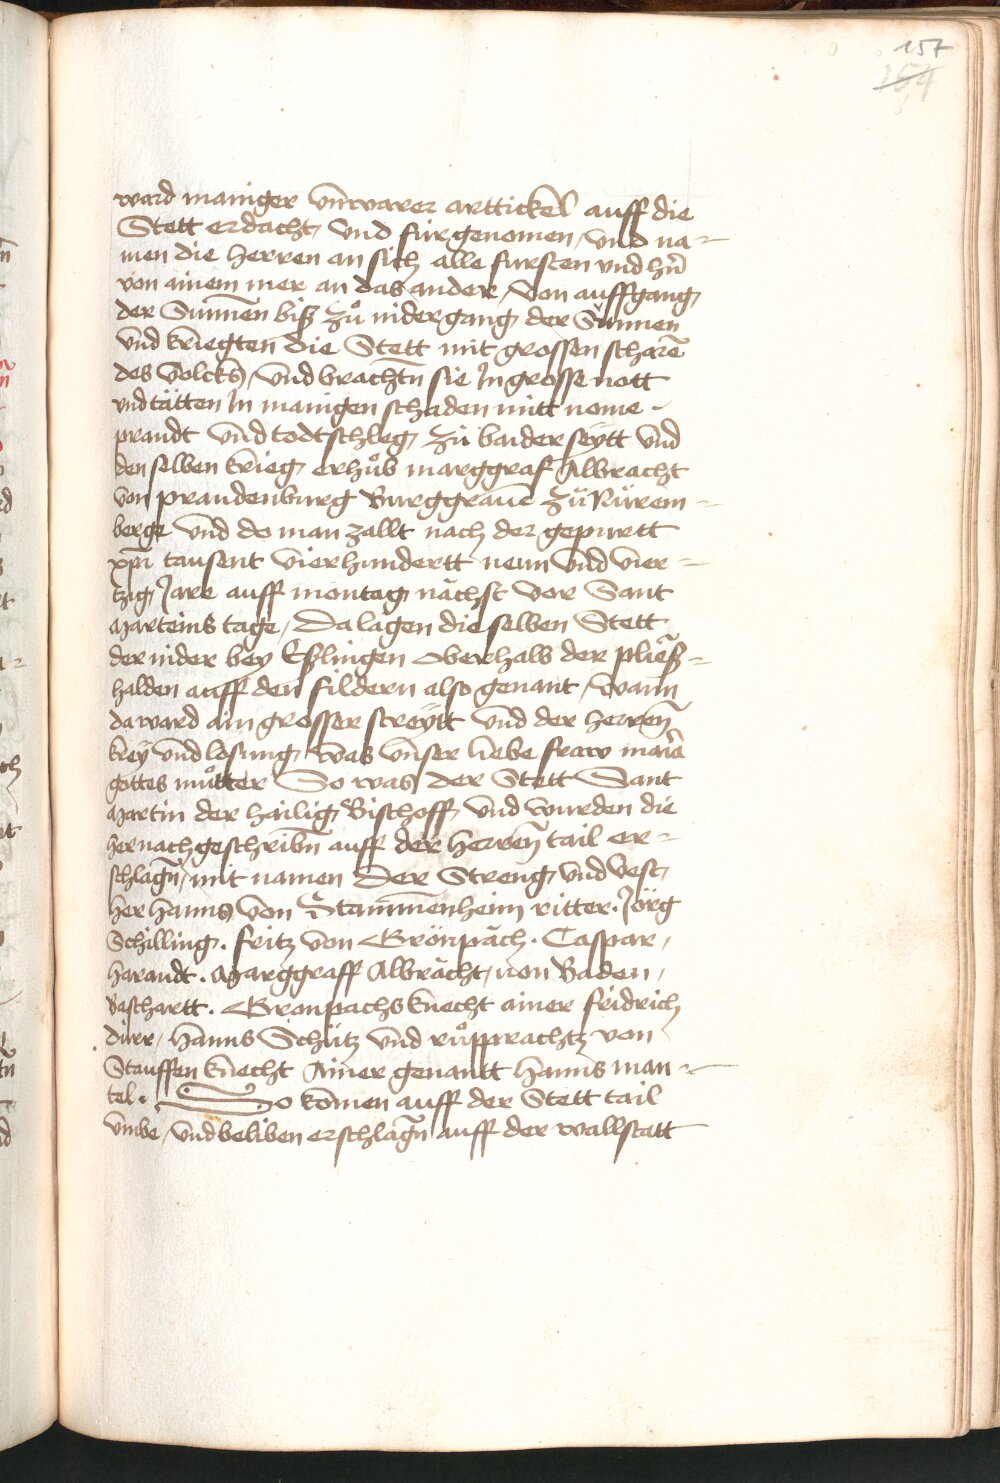 157
154
ward maniger vnwarer arttickel auff die
Stett erdacht, vnd fürgenomen, vnd na-
men die herren an sich alle fursten vnd hr̄n
von ainem mer an das ander, von auffgang
der Sunnen biß zů nidergang der Sunnen
vnd kriegten die Stett mit grossen scharē
des volcks, vnd brachtn̄ sie In grosse nott
vnd tätten In manigen schaden mitt nome -
prandt vnd todtschleg, zů baider seÿtt vnd
den selben krieg erhůb marggraf Albracht
von prandenburg Burggraue zu Nürem-
berge vnd do man zallt nach der gepurtt
xp̄i tausent vierhundertt neun vnd vier-
tzig Jare auff montag nächst vor Sant
Marteins tage, Da lagen die selben Stett
der nider bey Eßlingen oberhalb der pließ-
halden auff den fildern also genant, wann
da ward ain grosser streÿtt vnd der herren
kreÿ vnd losung, was vnser liebe fraw maria
gottes můtter So was der Stett Sant
Martin der hailig Bischoff, vnd wurden die
hernach geschribn̄ auff der herren tail er-
schlagn̄, mit namen Der Streng vnd vest,
her hanns von Stammenheim ritter. Jörg
Schilling. fritz von Grönpäch. Caspar,
harandt. Marggraff Albrächt, von Baden,
baschartt. Gronpachs knecht ainer fridrich
dürr, hanns Schütz vnd růpprachtz von
Stauffen knecht Ainer genantt hanns man-
tel. So komen auff der Stett tail
vmbe, vnd beliben erschlagn̄ auff der wallstatt